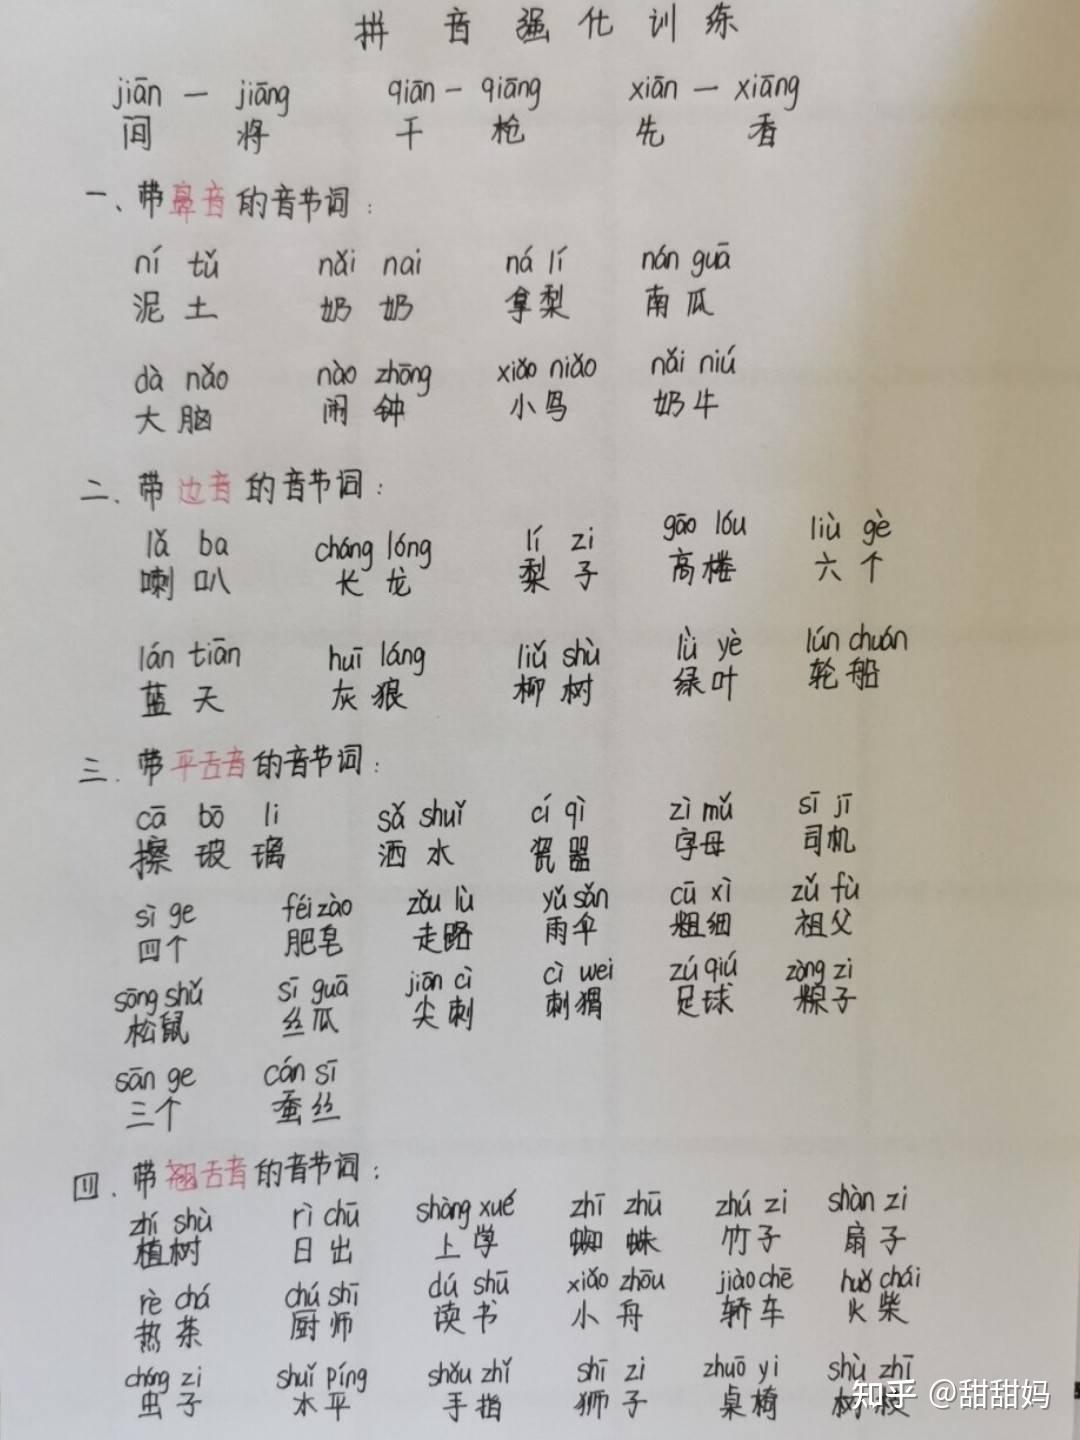 拼音强化训练
jiān — jiāng qiān — qiāng xiān — xiāng
间 将 千 枪 先 香
一、带鼻音的音节词：
ní tǔ nǎi nai ná lí nán guā
泥土 奶奶 拿梨 南瓜
dà nǎo nào zhōng xiǎo niǎo nǎi niú
大脑 闹钟 小鸟 奶牛
二、带边音的音节词：
lǎ ba cháng lóng lí zi gāo lóu liù gè
喇叭 长龙 梨子 高楼 六个
lán tiān huī láng liǔ shù lǜ yè lún chuán
蓝天 灰狼 柳树 绿叶 轮船
三、带平舌音的音节词：
cā bō li sǎ shuǐ cí qì zì mǔ sī jī
擦玻璃 洒水 瓷器 字母 司机
sì ge féi zào zǒu lù yǔ sǎn cū xì zǔ fù
四个 肥皂 走路 雨伞 粗细 祖父
sōng shǔ sī guā jiān cì cì wei zú qiú zòng zi
松鼠 丝瓜 尖刺 刺猬 足球 粽子
sān ge cán sī
三个 蚕丝
四、带翘舌音的音节词：
zhí shù rì chū shàng xué zhī zhū zhú zi shàn zi
植树 日出 上学 蜘蛛 竹子 扇子
rè chá chú shī dú shū xiǎo zhōu jiào chē huǒ chái
热茶 厨师 读书 小舟 轿车 火柴
chóng zi shuǐ píng shǒu zhǐ shī zi zhuō yi shù zhī
虫子 水平 手指 狮子 桌椅 树枝
知乎 @甜甜妈